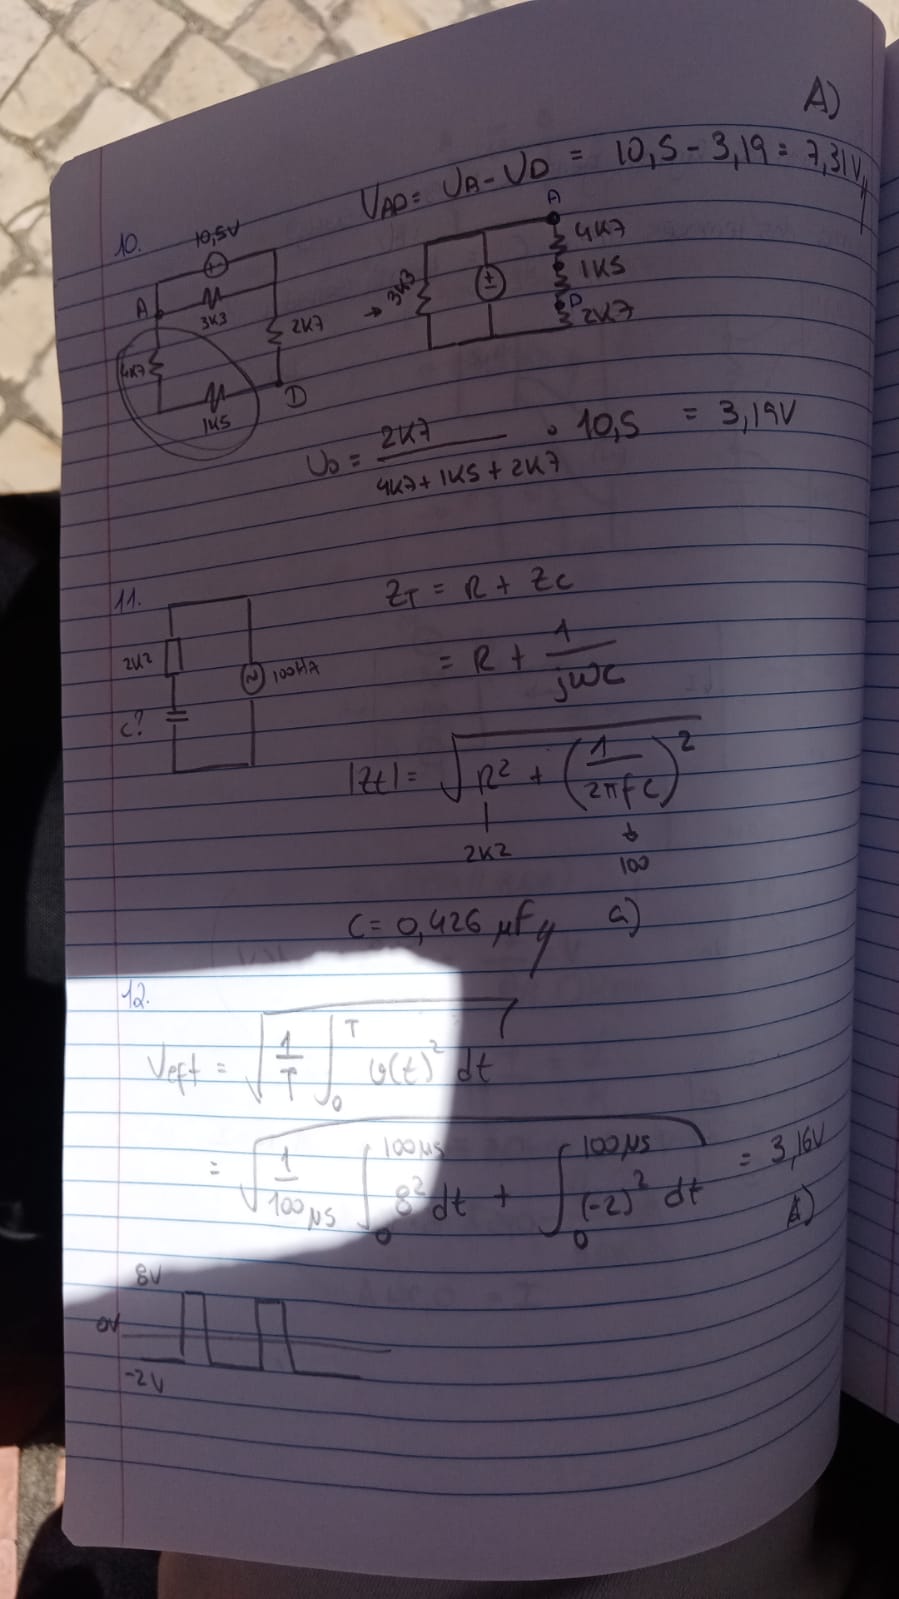 A)
V_AD = U_A - U_D = 10,5 - 3,19 = 7,31V
10.
10,5V
A
3K3
2K7
4K7
1K5
D
→
3K3
A
4K7
1K5
D
2K7
U_D = 2K7 / (4K7 + 1K5 + 2K7) • 10,5 = 3,19V
11.
2K2
C?
100HZ
Z_T = R + Z_C
= R + 1/(jωC)
|Zt| = √(R² + (1/(2πfC))²)
2K2
100
C = 0,426 µF
a)
12.
Veff = √(1/T ∫₀ᵀ v(t)² dt)
= √(1/100µs ∫₀^100µs 8² dt + ∫₀^100µs (-2)² dt) = 3,16V
A)
8V
0V
-2V